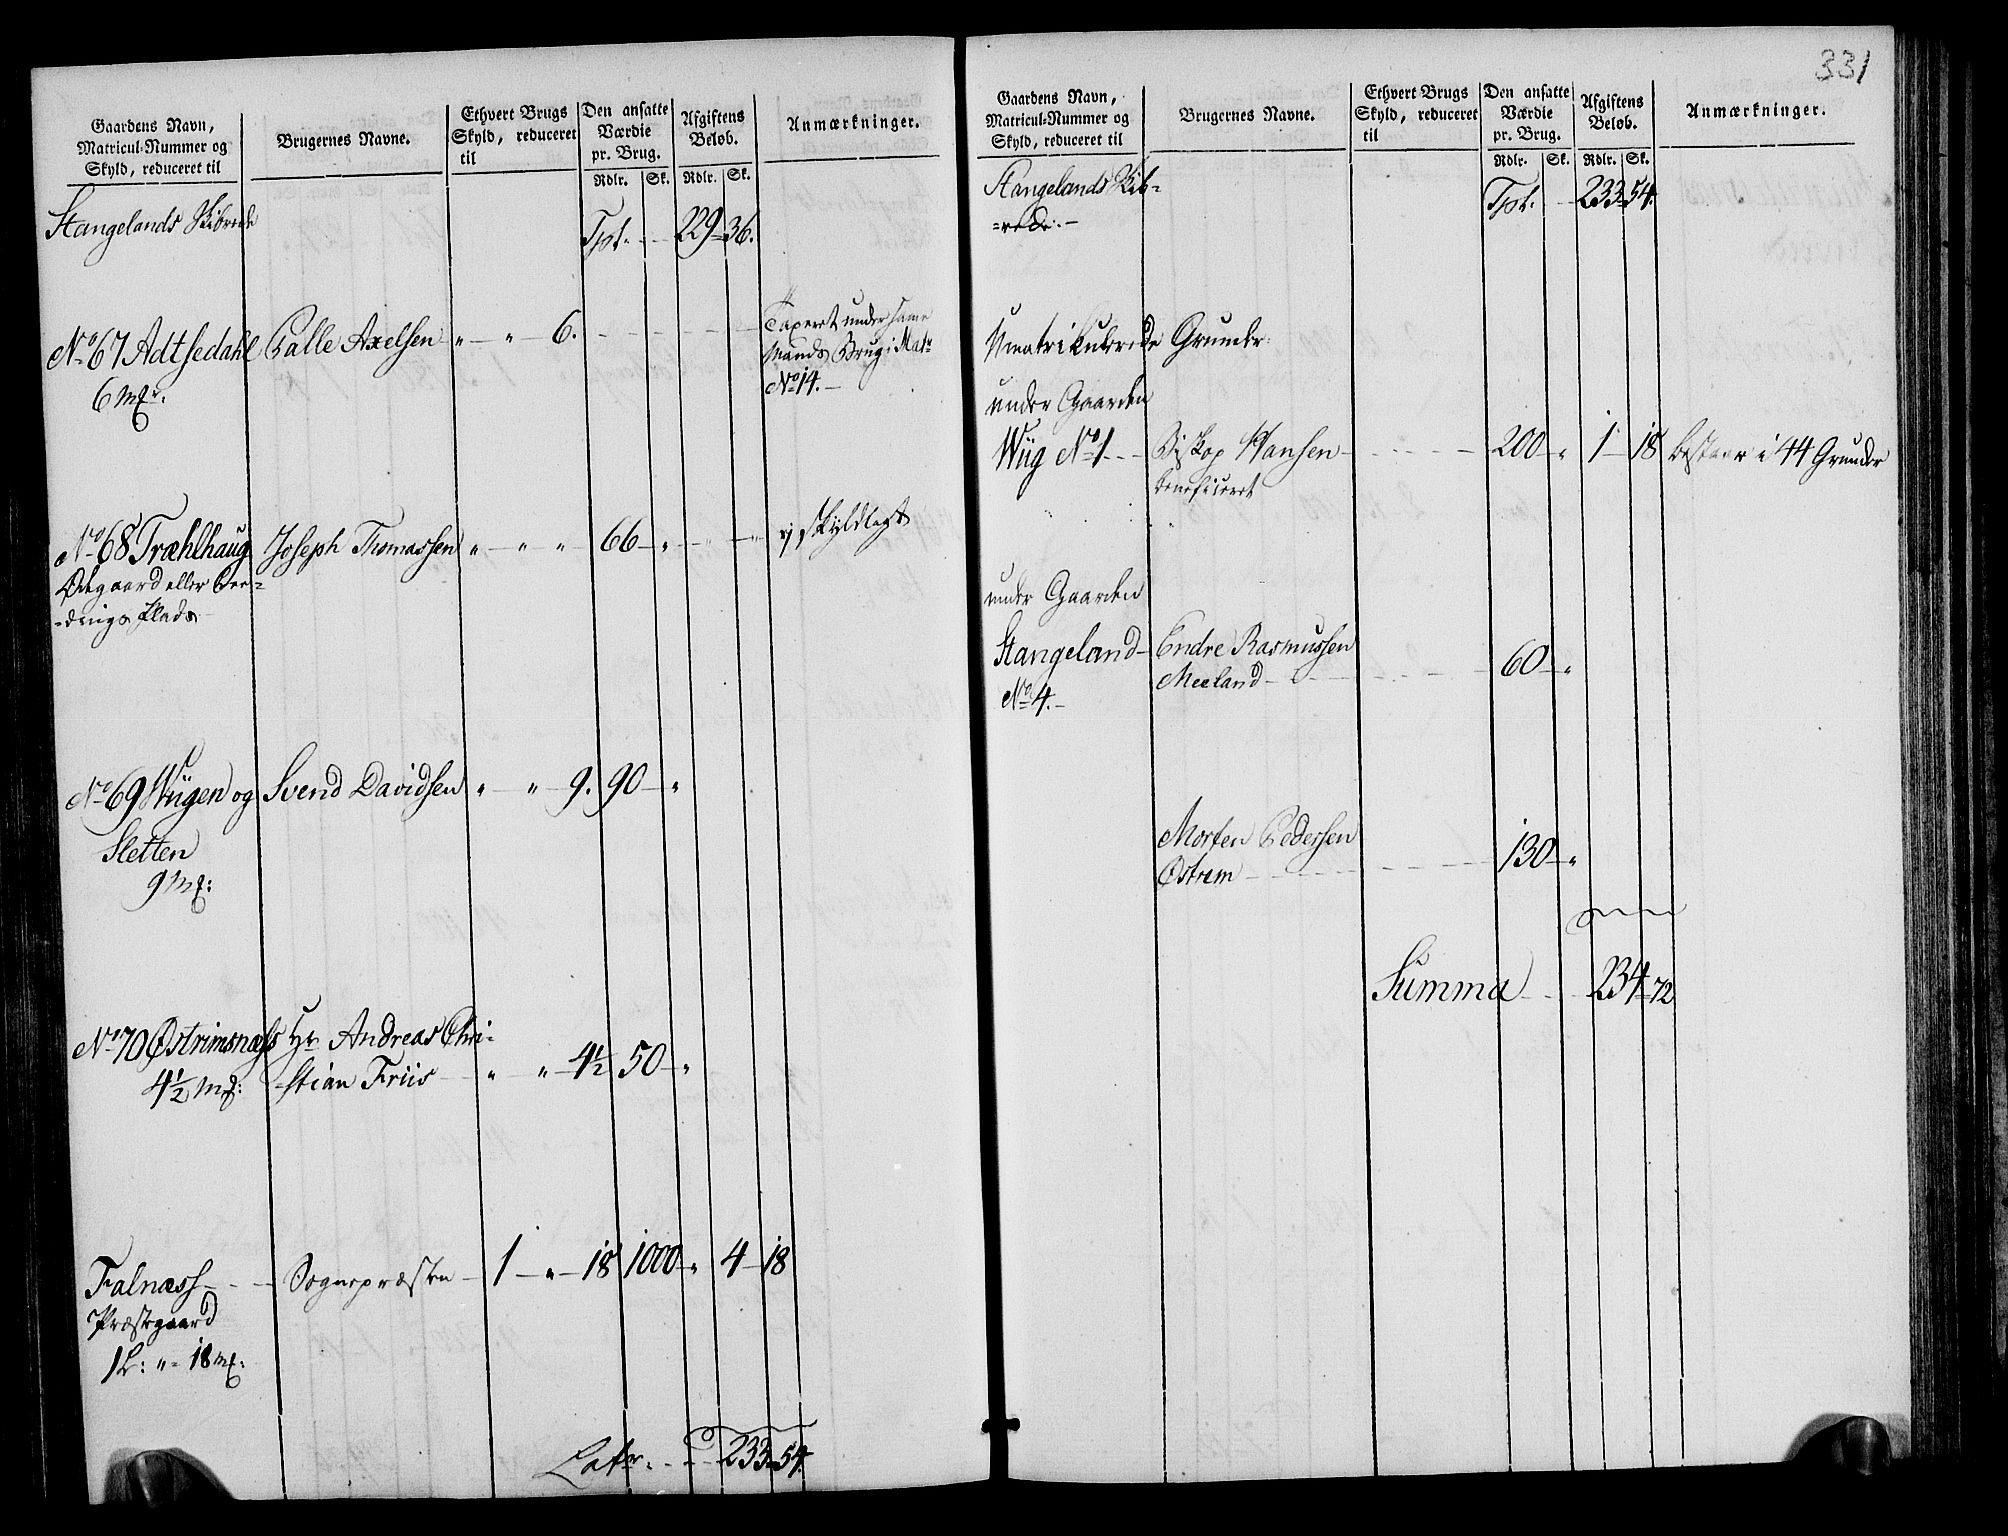 Gaardens Navn,
Matricul-Nummer og
Skyld, reduceret til
Brugernes Navne.
Ethvert Brugs
Skyld, reduceret
til
Den ansatte
Værdie
pr. Brug.
Rdlr. Sk.
Afgiftens
Beløb.
Rdlr. Sk.
Anmærkninger.
Stangelands Skibrede Tpt. 229 36.
No 67 Adtsedahl Palle Axelsen " " 6. Taxeret under samme
6 mk. Mands Brug i Matr
No 14.
No 68 Træhlhaug Joseph Thomassen " " " 66 " " " ej skyldlagt
Ødegaard eller
Plads
No 69 Wiigen og Svend Davidsen " " 9. 90 "
Sletten
9 mk:
No 70 Østrimsnæss Hr Andreas Chri-
4½ mk: stian Friis " " 4½ 50 "
Falnæss Sognepræsten 1 " 18 1000 " 4 18
Præstegaard
1 L: " 18 mk:
Latr. 233 54.
331
Gaardens Navn,
Matricul-Nummer og
Skyld, reduceret til
Brugernes Navne.
Ethvert Brugs
Skyld, reduceret
til
Den ansatte
Værdie
pr. Brug.
Rdlr. Sk.
Afgiftens
Beløb.
Rdlr. Sk.
Anmærkninger.
Stangelands Skib-
=rede. Tpt. 233 54.
Umatrikulerede Grunde:
under Gaarden
Wiig No 1 Biskop Hansen 200 " 1 18 bestaar i 44 Grunder
beneficeret
under Gaarden
Stangeland Endre Rasmussen
No 4. Meeland 60 "
Morten Pedersen
Østrem 130 "
Summa 234 72